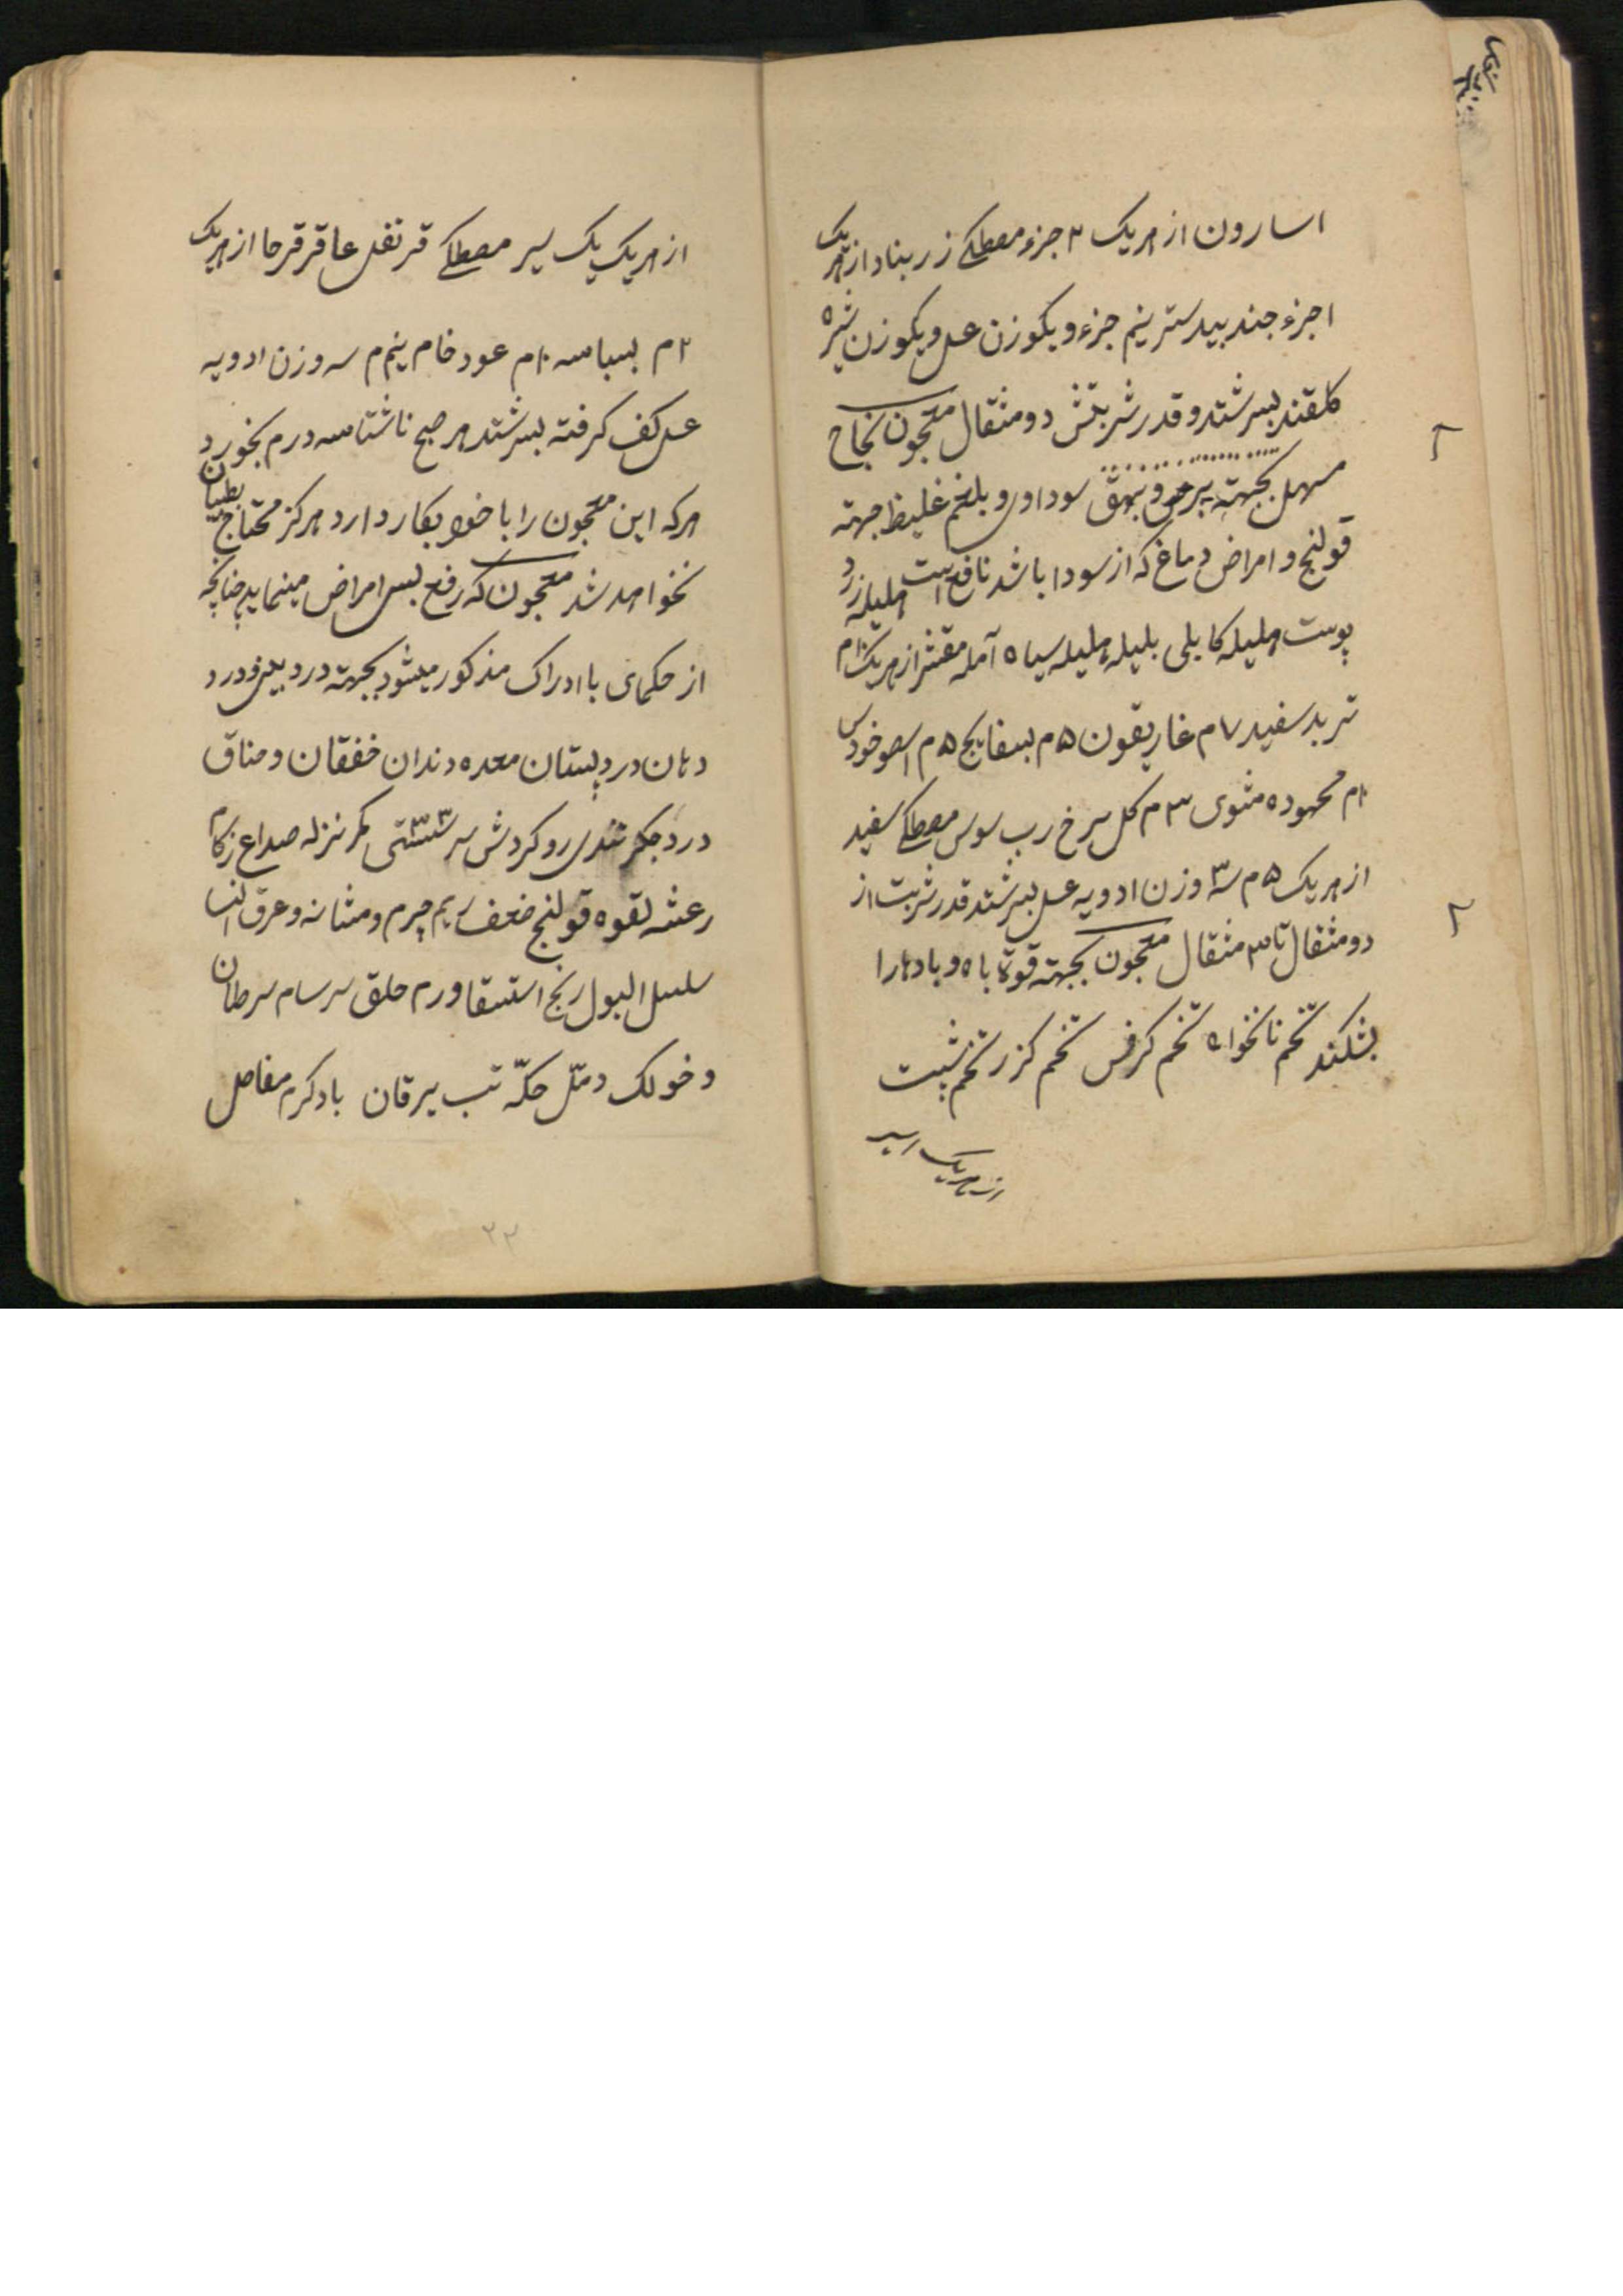 اسارون از هریک ۲ جزء مصطکی زرنباد از هریک
۱ جزء جندبیدستر نیم جزء و یکوزن عسل و یکوزن شیره
کلقند بسرشند و قدر شربتش دو مثقال معجون نجاح
مسهل بجهته برص و بهق سوداوی و بلغم غلیظ جهته
قولنج و امراض دماغ که از سودا باشد نافع است هلیله زرد
پوست هلیله کابلی بلیله هلیله سیاه آمله مقشر از هریک ۱۰م
تربد سفید ۷م غاریقون ۵م بسفایج ۵م اسطوخودس
۱۰م محموده مشوی ۳م کل سرخ رب سوس مصطکی سفید
از هریک ۵م سه وزن ادویه عسل بسرشند قدر شربت از
دو مثقال تا ۳ مثقال معجون بجهته قوة باه و بادها را
بشکند تخم نانخواه تخم کرفس تخم کزر تخم شبت
از هریک
از هریک یک سیر مصطکی قرنفل عاقرقرحا از هریک
۲م بسباسه ۲م عود خام نیم م سه وزن ادویه
عسل کف کرفته بسرشند هر صبح ناشتا سه درم بخورد
هرکه این معجون را با خود بکار دارد هرکز محتاج بطبیبان
نخواهد شد معجون که رفع بس امراض مینماید چنانچه
از حکمای با ادراک مذکور میشود بجهته درد بینی و درد
دهان درد پستان معده دندان خفقان و خناق
درد جکر تندی رو کردش سر سستی کمر نزله صداع زکام
رعشه لقوه قولنج ضعف ریم چرم و مثانه و عرق النسا
سلسل البول رنج استسقا ورم حلق سرسام سرطان
و خولک دمّل حکّه تب یرقان باد کرم مفاصل
۲۳